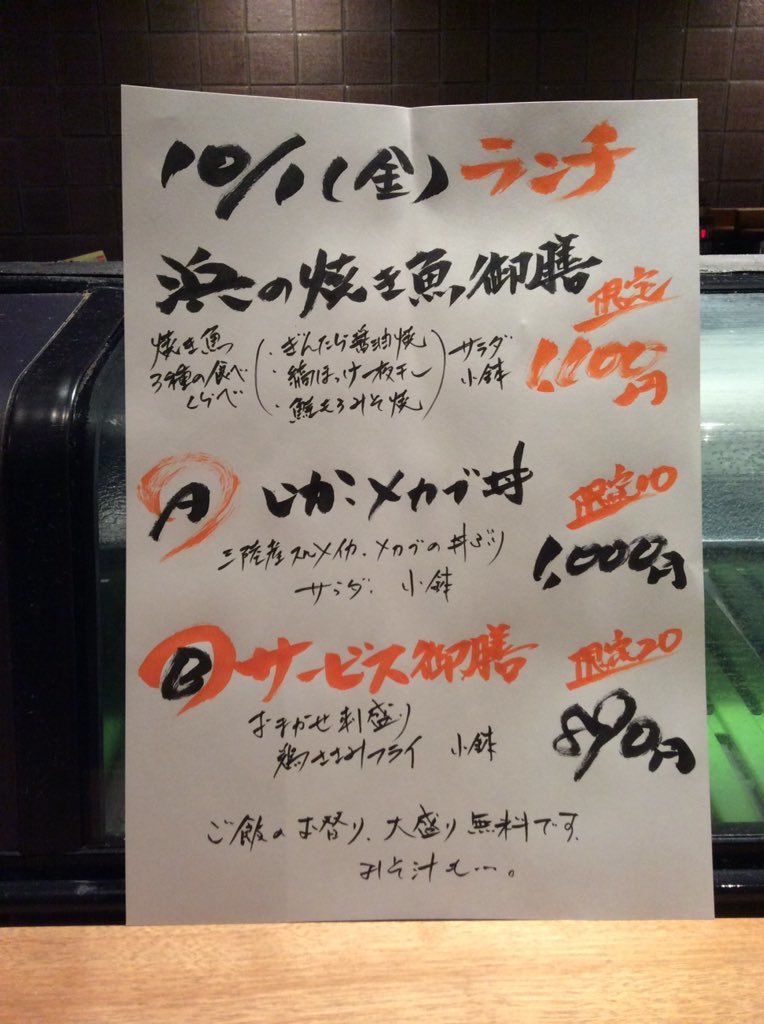 10/1(金)ランチ
浜の焼き魚御膳
限定
1,100円
焼き魚
3種の食べ
くらべ
・ぎんだら醤油焼
・縞ほっけ一夜干し
・鮭とろみそ焼
サラダ
小鉢
A いか・メカブ丼
限定10
1,000円
三陸産スルメイカ、メカブの丼ぶり
サラダ、小鉢
B サービス御膳
限定20
890円
おまかせ刺盛り
鶏ささみフライ 小鉢
ご飯のお替り、大盛り無料です、
みそ汁も…。